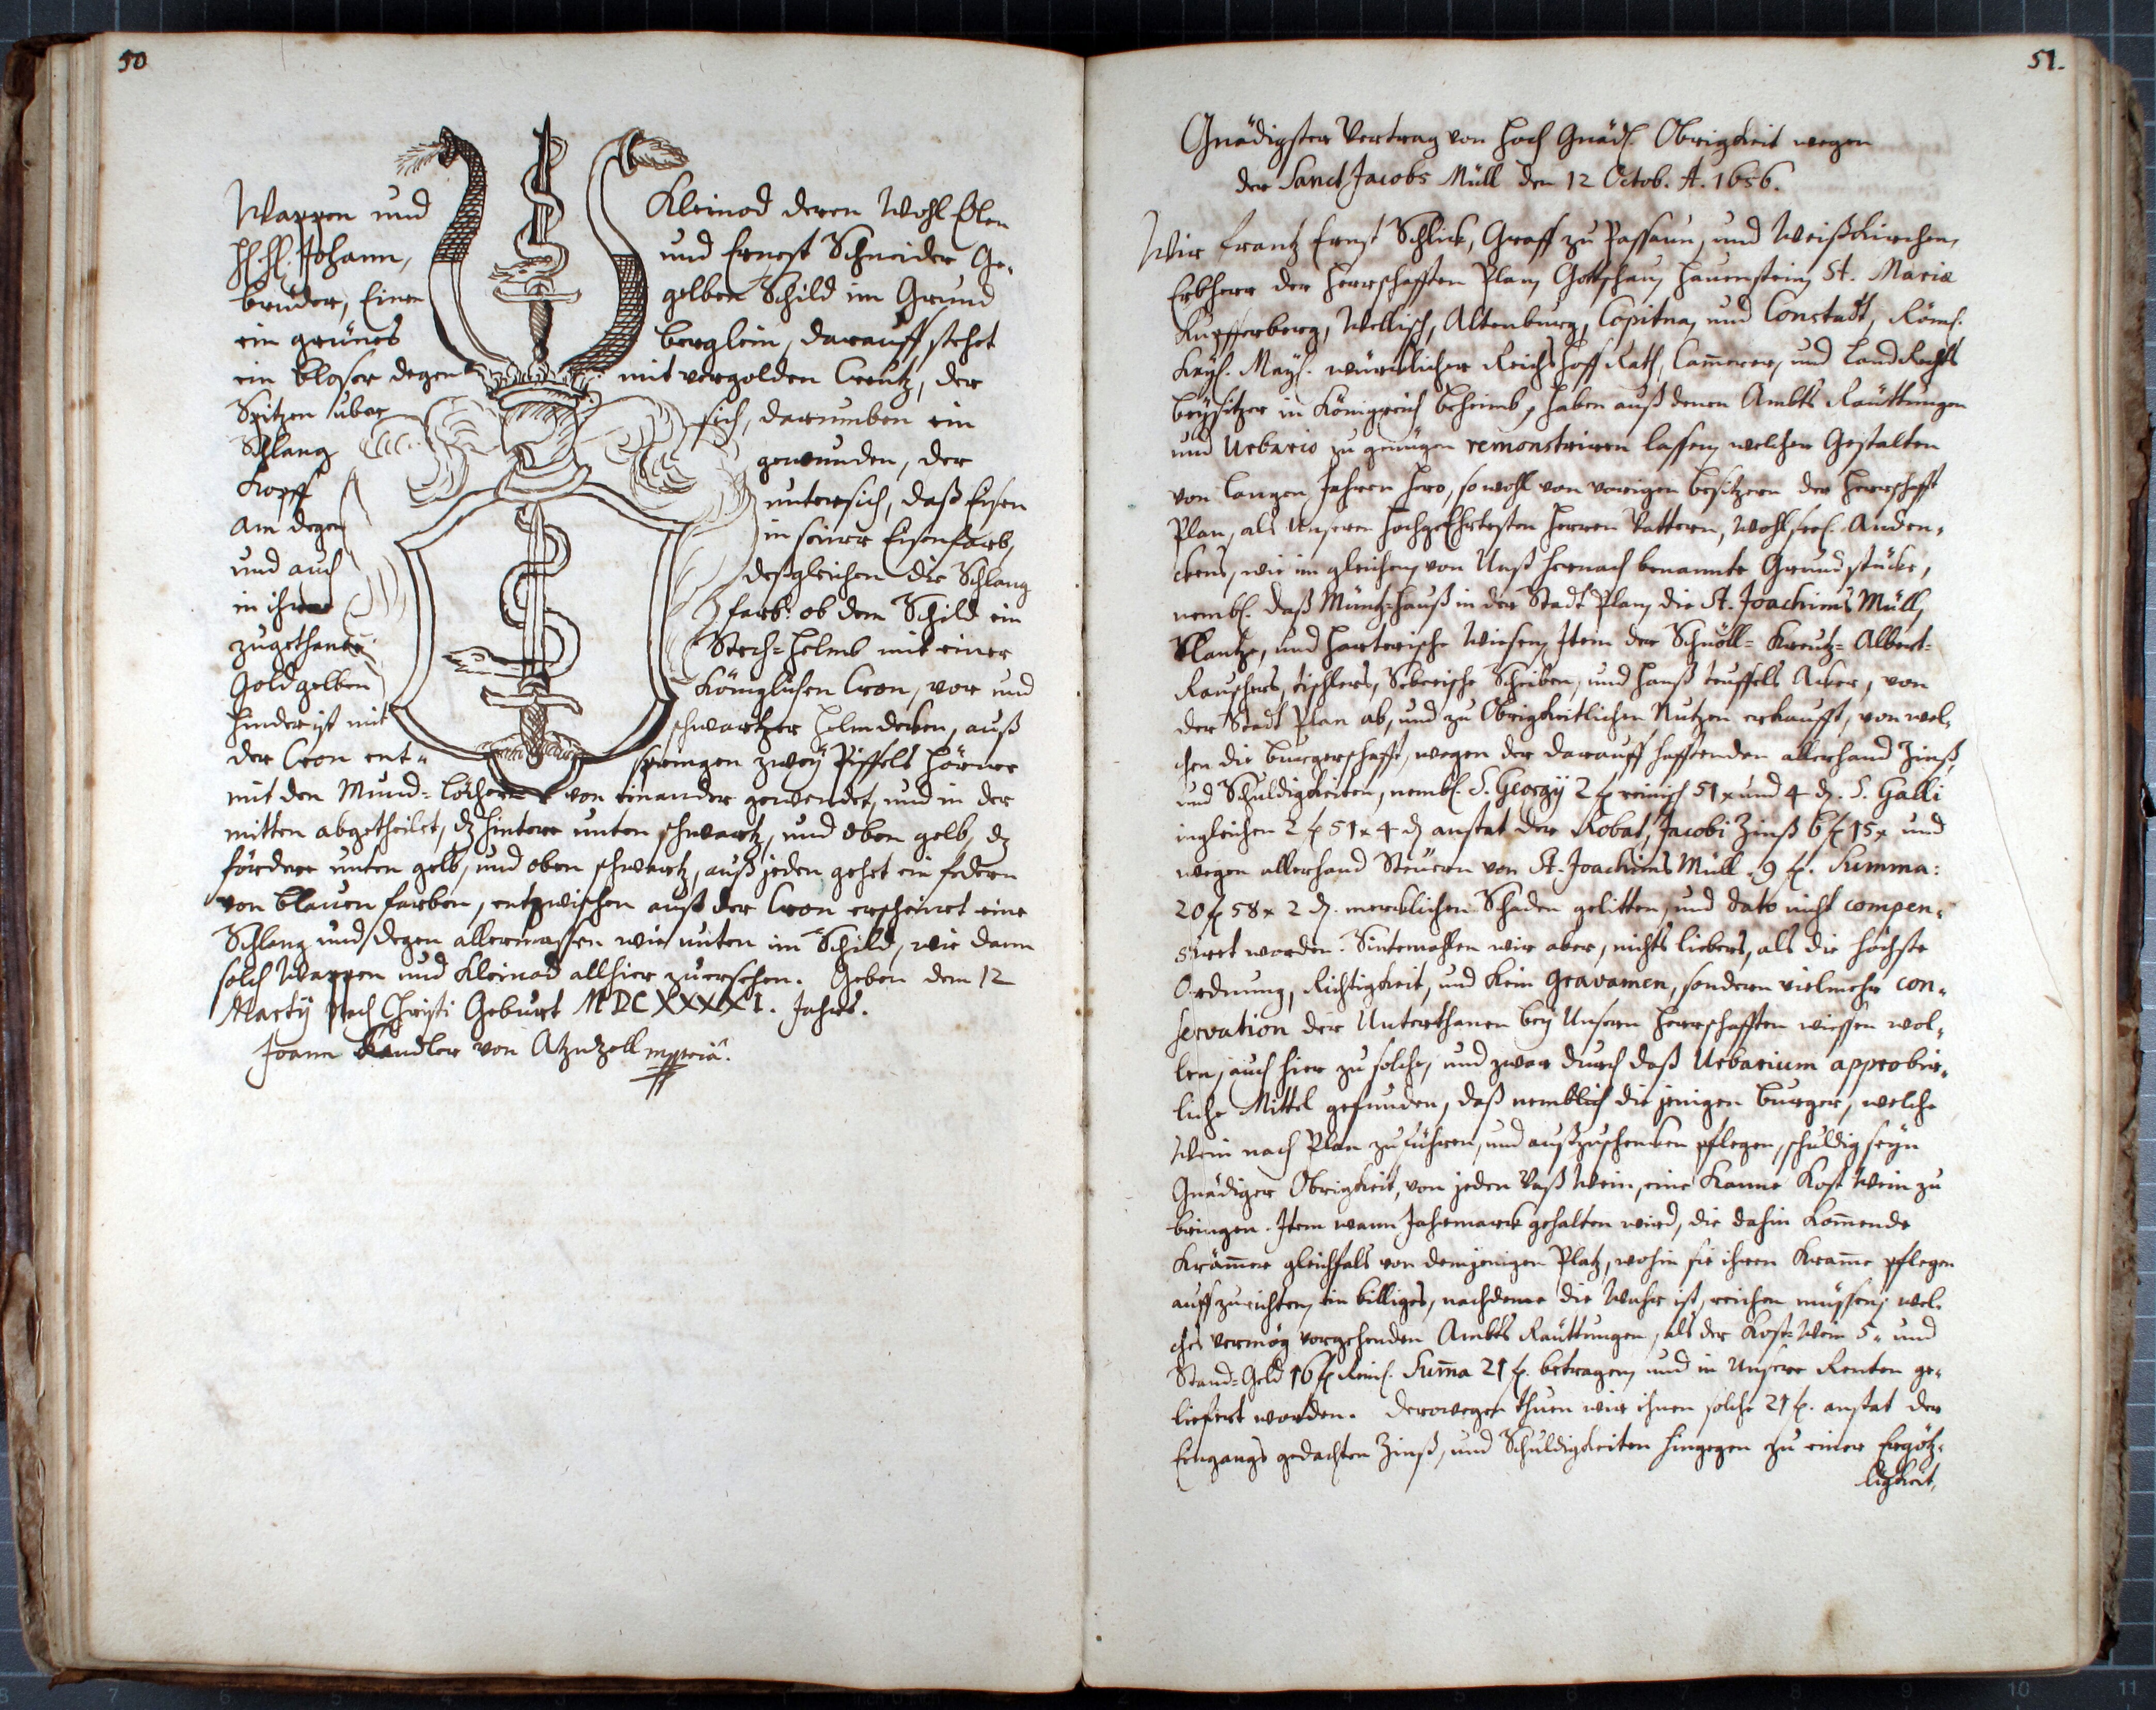 50
Wappen und Kleinod deren Wohl Edlen
HH. HH. Johann, und Ernest Schneider Ge-
brüder, Einen gelben Schild im Grund
ein grünes berglein, darauff stehet
ein bloser degen mit vergolden Creutz, der
Spitzen uber sich, darumben ein
Schlang gewunden, der
Kopff untersich, daß Eysen
am degen in seiner Eisenfarb,
und auch deßgleichen die Schlang
in ihrer farb: ob dem Schild ein
zugethaner Stech-Helmb mit einer
Goldgelben Königlichen Cron, vor und
hinder ist mit schwartzer Helmdecken, auß
der Cron ent- springen zwey Piffels Hörner
mit den Mund-löchern von einander gewendet, und in der
mitten abgetheilet, dz hintere unten schwartz, und oben gelb, dz
fördere unten gelb, und oben schwartz, auß jeden gehet ein federn
von blauen farben, entzwischen auß der Cron erscheinet eine
Schlang und degen allermassen wie unten im Schild, wie dann
solch Wappen und Kleinod allhier zuersehen. Geben dem 12
Martij Nach Christi Geburt MDCXXXXI. Jahrs.
Joann Kandler von Atznzell mppriâ.
51.
Gnädigster Vertrag von Hoch Gnäd. Obrigkeit wegen
der Sanct Jacobs Müll den 12 Octob. A. 1656.
Wir Frantz Ernst Schlick, Graff zu Passaun, und Weißkirchen,
Erbherr der Herrschafften Plan, Gottschau, Hauenstein, St. Mariæ
Kupfferberg, Wellisch, Altenburg, Copitna, und Constadt, Röm.
Kays. May. würcklicher Reichs Hoff Rath, Cammerer, und LandRechts
beysitzer in Königreich Beheimb, haben auß denen Ambts Raittungen
und Urbario zu genügen remonstriren lassen, welcher Gestalten
von langen Jahren hero, sowohl von vorigen besitzern der Herrschafft
Plan, als Unseren Hochgeehrtesten Herren Vattern, Wohlseel. Anden-
ckens, wie im gleichen, von Unß hernach benannte Grundstücke,
nembl. daß Müntz-Hauß in der Stadt Plan, die St. Joachims Müll,
Plantze, und Harterische Wiesen, Item der Schnöll- Kreutz- Albert-
Rauschers, Tischlers, Seberische Scheiben, und Hanß Teuffels Acker, von
der Stadt Plan ab, und zu Obrigkeitlichen Nutzen erkaufft, von wel-
chen die burgerschafft, wegen der darauff hafftenden allerhand Zinß,
und Schuldigkeiten, nembl. S. Georgij 2 f. reinisch 51 x und 4 d. S. Galli
ingleichen 2 f. 51 x 4 d anstat der Robat, Jacobi Zinß 6 f. 15 x und
wegen allerhand Steuern von St. Joachims Müll 9 f. Summa:
20 f. 58 x 2 d. mercklichen Schaden gelitten, und dato nicht compen-
siret worden. Sintemahlen wir aber, nichts liebers, als die höchste
Ordnung, Richtigkeit, und kein gravamen, sondern vielmehr con-
servation der Unterthanen bey Unsern Herrschafften wissen wol-
len, auch hier zu solche, und zwar durch daß Urbarium approbir-
liche Mittel gefunden, daß nemblich die jenigen burger, welche
Wein nach Plan zuführen, und außzuschencken pflegen, schuldig seyn
Gnädiger Obrigkeit, von jeden Vaß Wein, eine Kanne Kost Wein zu
bringen. Item wann Jahrmarck gehalten wird, die dahin kommende
Krämmer gleichfals von demjenigen Platz, wohin sie ihren Kramme pflegen
auffzurichten, ein billiges, nachdeme die Wahr ist, reichen müssen, wel-
ches vermög vorgehenden Ambts Raittungen, als der Kost-Wein 5. und
Stand-Geld 16 f. Rein. Summa 21 f. betragen, und in Unsere Renten ge-
liefert worden. Derowegen thuen wir ihnen solche 21 f. anstat der
Eingangs gedachten Zinß, und Schuldigkeiten hingegen zu einer Ergötz-
ligkeit,